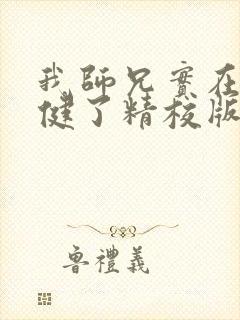 我師兄實在
健了精校版
魯禮義